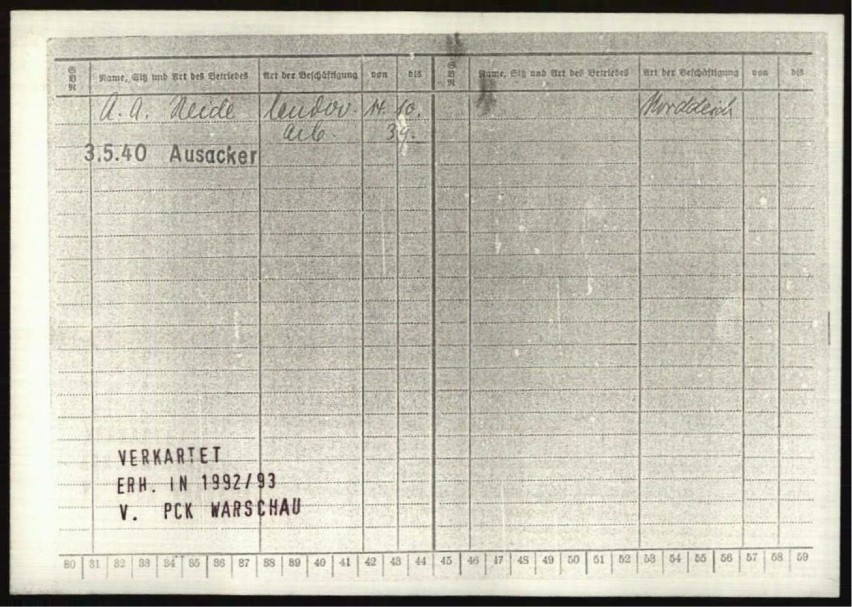 SBN Name, Sitz und Art des Betriebes Art der Beschäftigung von bis SBN Name, Sitz und Art des Betriebes Art der Beschäftigung von bis
A. A. Heide landw. 14. 10.
arb 39.
3.5.40 Ausacker
VERKARTET
ERH. IN 1992/93
V. PCK WARSCHAU
80 31 82 33 34 35 36 37 38 39 40 41 42 43 44 45 46 47 48 49 50 51 52 53 54 55 56 57 58 59